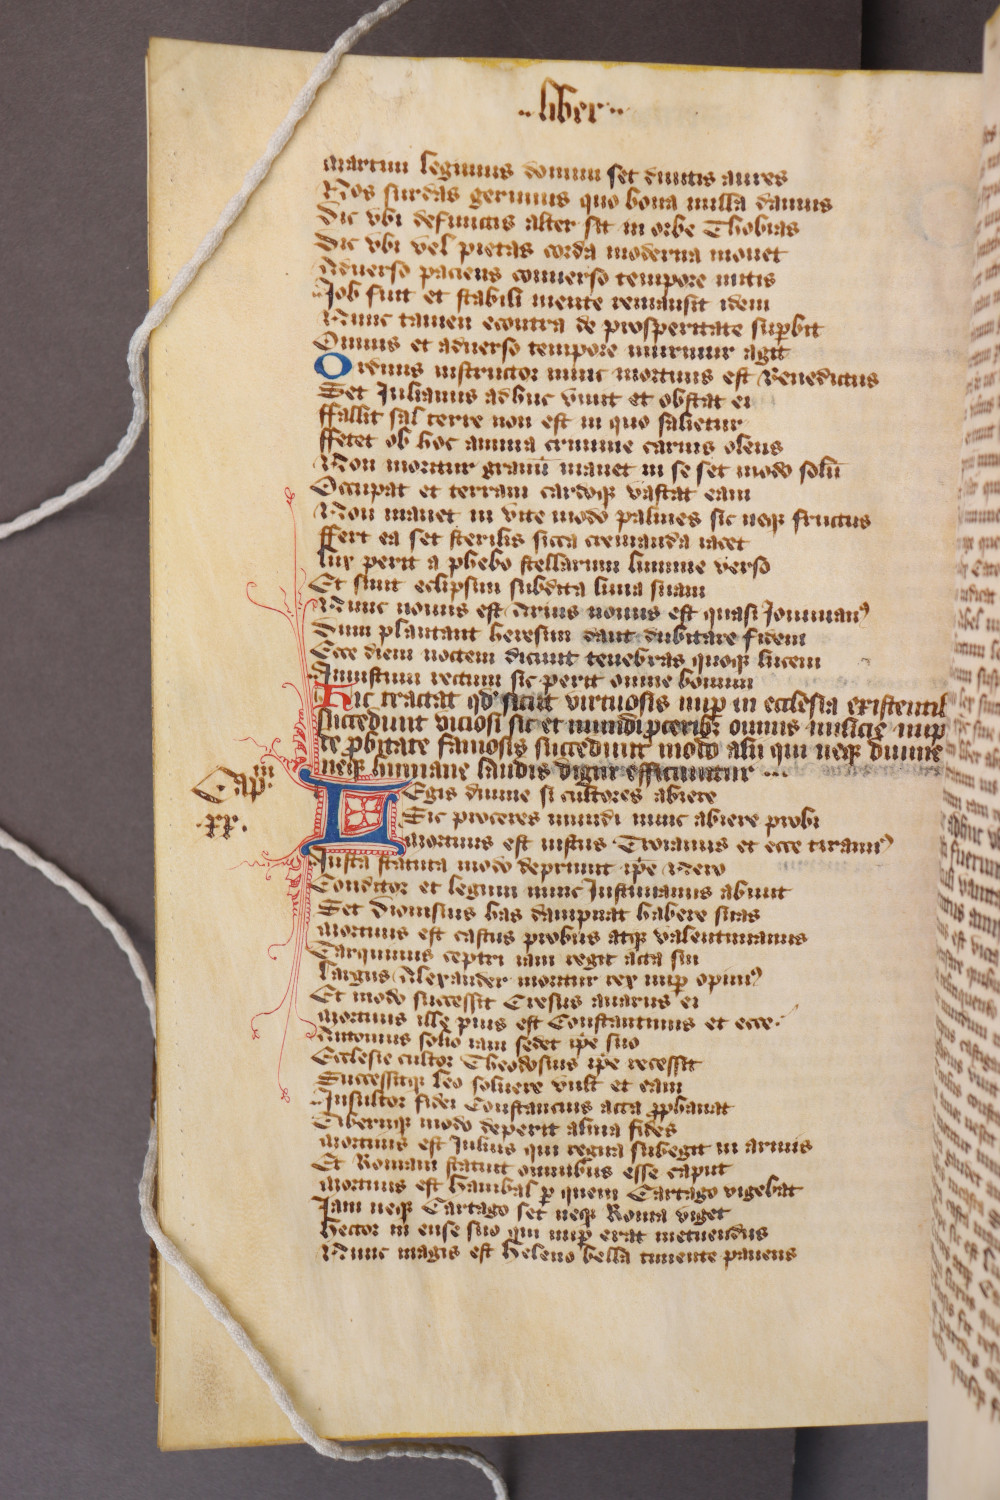 ·· liber ··
Martini legimus domini set diuitis aures
Nos surdas gerimus quo bona nulla damus
Dic vbi defunctis alter sit in orbe Thobias
Dic vbi vel pietas corda moderna mouet
Aduerso paciens conuerso tempore mitis
Job fuit et stabili mente remansit idem
Nunc tamen econtra de prosperitate suꝑbit
Omnis et aduerso tempore murmur agit
Ordinis instructor nunc mortuus est Benedictus
Set Julianus adhuc viuit et obstat ei
ffallit sal terre non est in quo salietur
ffetet ob hoc anima crimine carnis olens
Non moritur granū manet in se set modo solū
Occupat et terram cardoqꝫ vastat eam
Non manet in vite modo palmes sic neqꝫ fructus
ffert ea set sterilis sicca cremanda iacet
Lux perit a phebo stellarum lumine verso
Et sinit eclipsim subdita luna suam
Nunc nouus est Arius nouus est quasi Jouinianꝰ
Dum plantant heresim dant dubitare fidem
Ecce diem noctem dicunt tenebras quoqꝫ lucem
Iniustum rectum sic perit omne bonum
Hic tractat qđ sicut virtuosis nuꝑ in ecclesia existentib
succedunt viciosi sic et mundi ꝓceribꝫ omnis milicie nuꝑ
te ꝓbitate famosis succedunt modo alii qui neqꝫ diuine
neqꝫ humane laudis digni efficiuntur ···
Capᵐ
·xx·
Legis diuine si cultores abiere
Sic proceres mundi nunc abiere probi
Mortuus est iustus Troianus et ecce tirannꝰ
Justa statuta modo deprimit ip̄e Nero
Conditor et legum nunc Justinianus abiuit
Set Dionisius has dampnat habere suas
Mortuus est castus probus atqꝫ valentinianus
Tarquinius ceptri iam regit acta sui
Largus Alexander moritur rex nuꝑ opimꝰ
Et modo successit Cresus auarus ei
Mortuus ille pius est Constantinus et ecce
Antonius solio iam sedet ip̄e suo
Ecclesie cultor Theodosius ip̄e recessit
Successitqꝫ leo soluere vult et eam
Insultor fidei Constancius acta ꝓphanat
Tiberiiqꝫ modo deperit alma fides
Mortuus est Julius qui regna subegit in armis
Et Romam statuit omnibus esse caput
Mortuus est hanibal ꝑ quem Cartago vigebat
Jam neqꝫ Cartago set neqꝫ Roma viget
Hector in ense suo qui nuꝑ erat metuendus
Nunc magis est heleno bella timente pauens